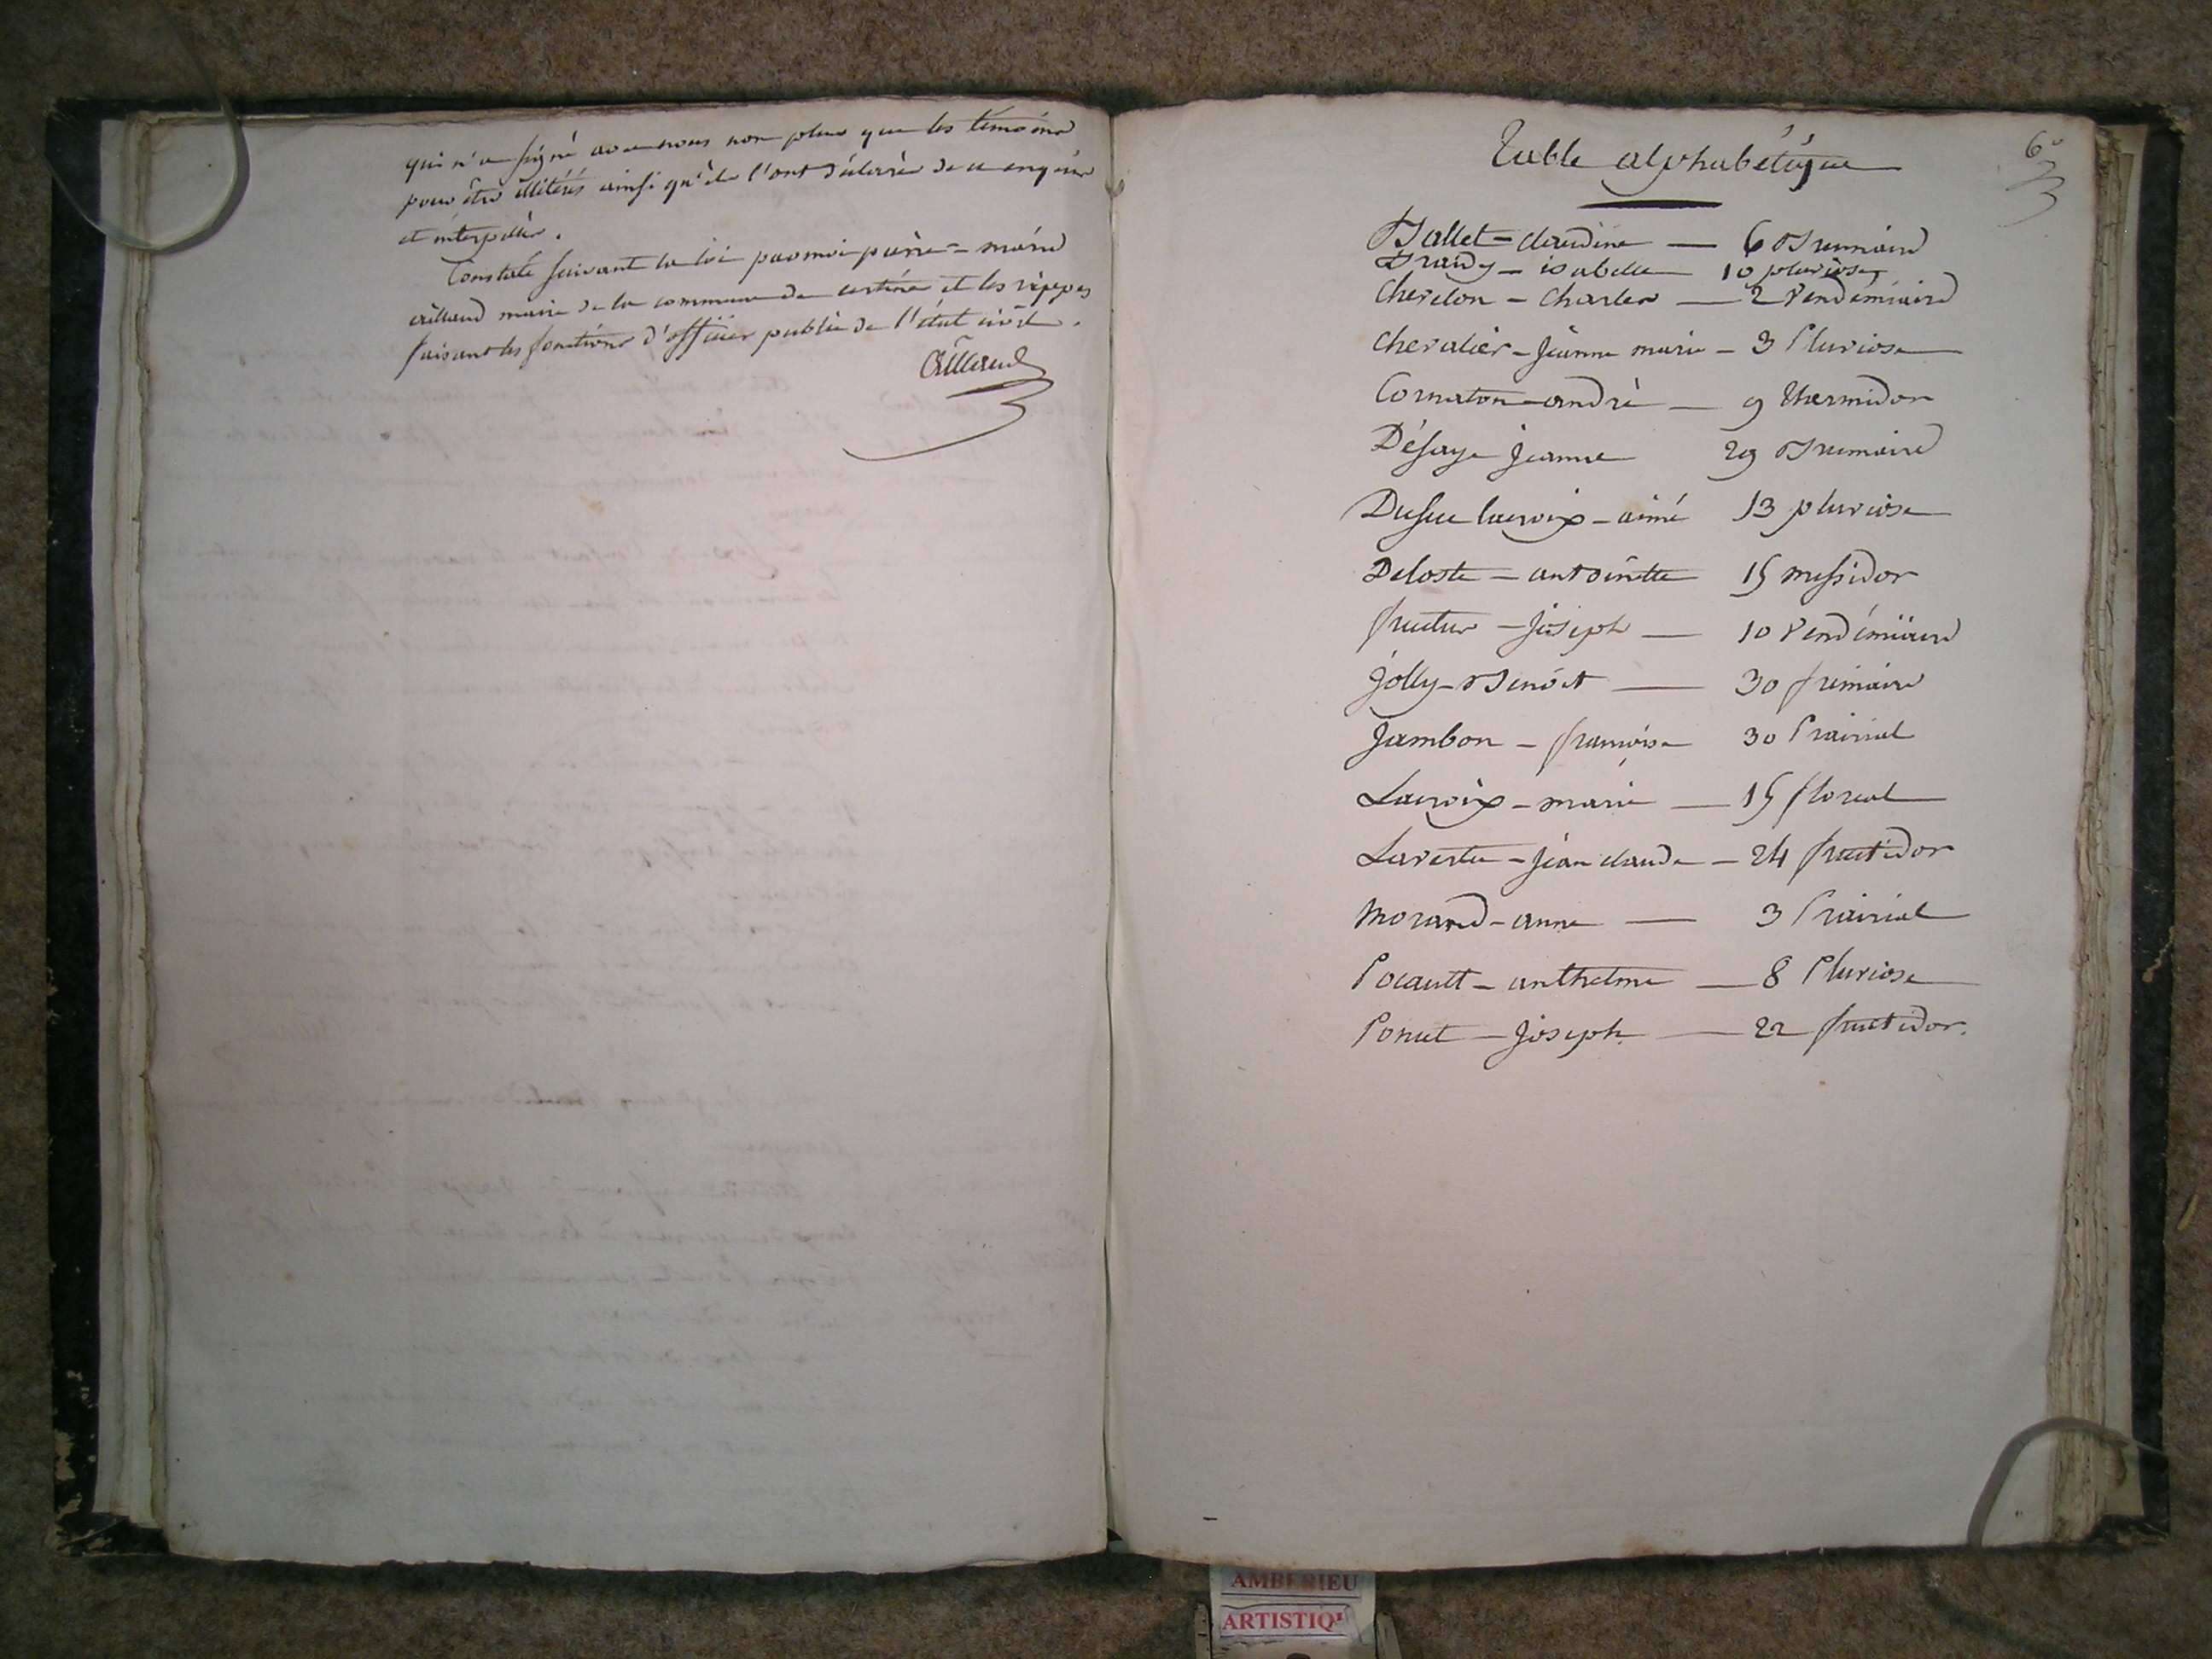 qui n'a signé avec nous non plus que les témoins
pour être illitérés ainsi qu'ils l'ont déclaré de ce enquis
et interpellés.
Constaté suivant la loi par moi pierre = marie
maire de la commune de certines et les rippes
faisant les fonctions d'officier public de l'état civil.
Table alphabétique
6e
Ballet - claudine — 6 Brumaire
isabelle 10 pluviose
Chevelon - Charles — 2 Vendémiaire
Chevalier - jeanne marie - 3 Pluviose
Cornaton - andré — 9 thermidor
Désaye jeanne 29 Brumaire
Dufue lacroix - aimé 13 pluviose
Deloste - antoinette 15 messidor
joseph — 10 Vendémiaire
jolly - Benoit — 30 frimaire
Jambon - françoise 30 Prairial
Lacroix - marie — 15 floreal
Laverte - jean claude - 24 fructidor
Morand - anne — 3 Prairial
Pocautt - anthelme — 8 Pluviose
Ponct - joseph — 22 fructidor.
AMBERIEU
ARTISTIQ